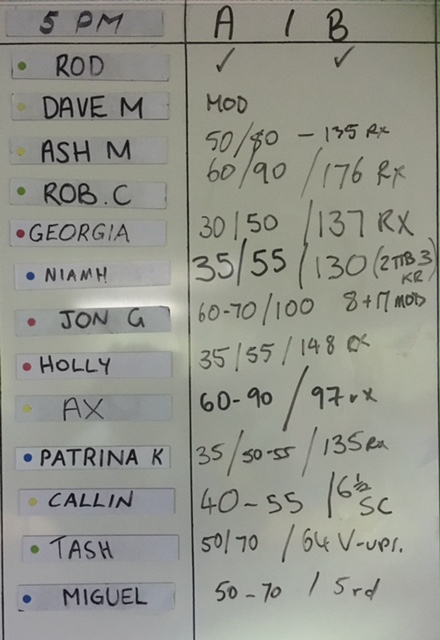 5 PM A / B
ROD ✓ ✓
DAVE M MOD
ASH M 50/80 - 135 Rx
ROB.C 60/90 /176 RX
GEORGIA 30/50 /137 RX
NIAMH 35/55 /130 (2TTB 3 KR)
JON G 60-70/100 8+17 MOD
HOLLY 35/55/148 RX
AX 60-90 / 97rx
PATRINA K 35/50-55/135Rx
CALLIN 40-55 /6½ SC
TASH 50/70 /64 V-ups.
MIGUEL 50-70 / 5rd